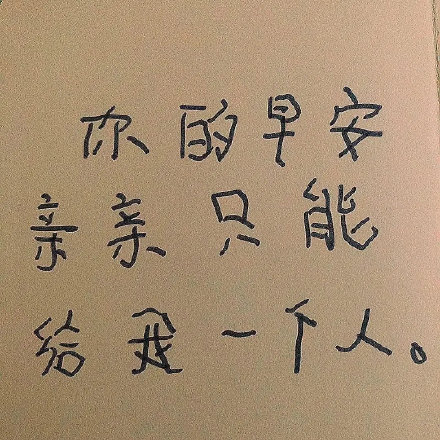 你的早安
亲亲只能
给我一个人。